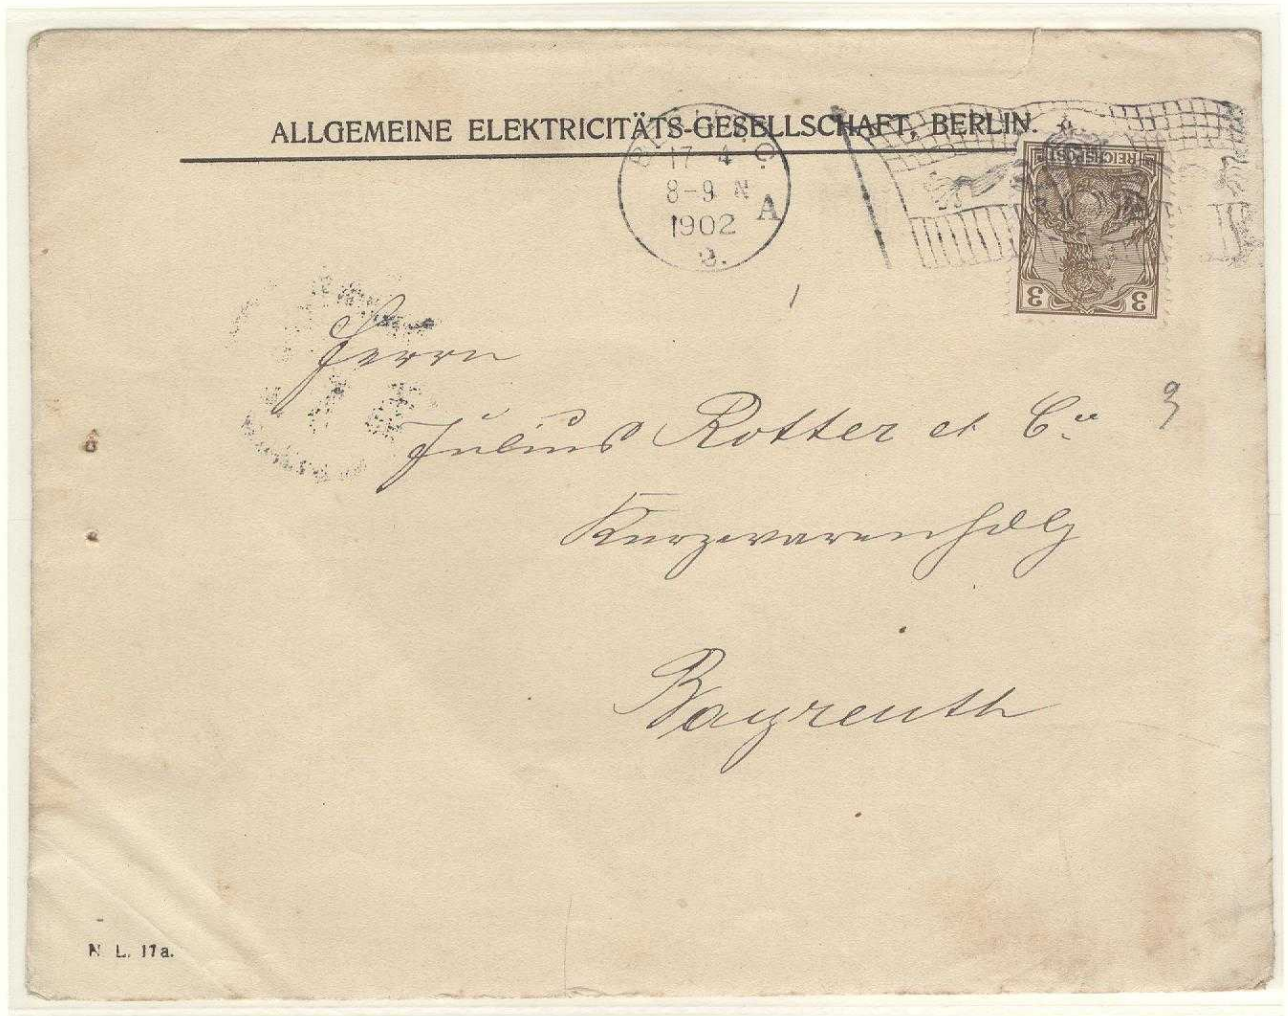 ALLGEMEINE ELEKTRICITÄTS-GESELLSCHAFT, BERLIN.
C.
17 4
8-9 N
A
1902
REICHSPOST
3 3
Herrn
Julius Rotter et Co
3
Kurzwarenhdlg
Bayreuth
N. L. 17a.